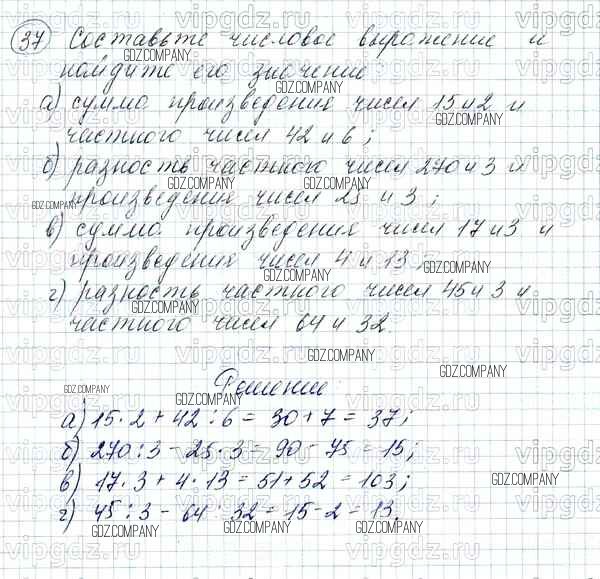 37 Составьте числовое выражение и
найдите его значение
а) сумма произведения чисел 15 и 2 и
частного чисел 42 и 6;
б) разность частного чисел 270 и 3 и
произведения чисел 25 и 3;
в) сумма произведения чисел 17 и 3 и
произведения чисел 4 и 13;
г) разность частного чисел 45 и 3 и
частного чисел 64 и 32.
Решение:
а) 15 · 2 + 42 : 6 = 30 + 7 = 37;
б) 270 : 3 - 25 · 3 = 90 - 75 = 15;
в) 17 · 3 + 4 · 13 = 51 + 52 = 103;
г) 45 : 3 - 64 : 32 = 15 - 2 = 13.
vipgdz.ru
GDZ.COMPANY